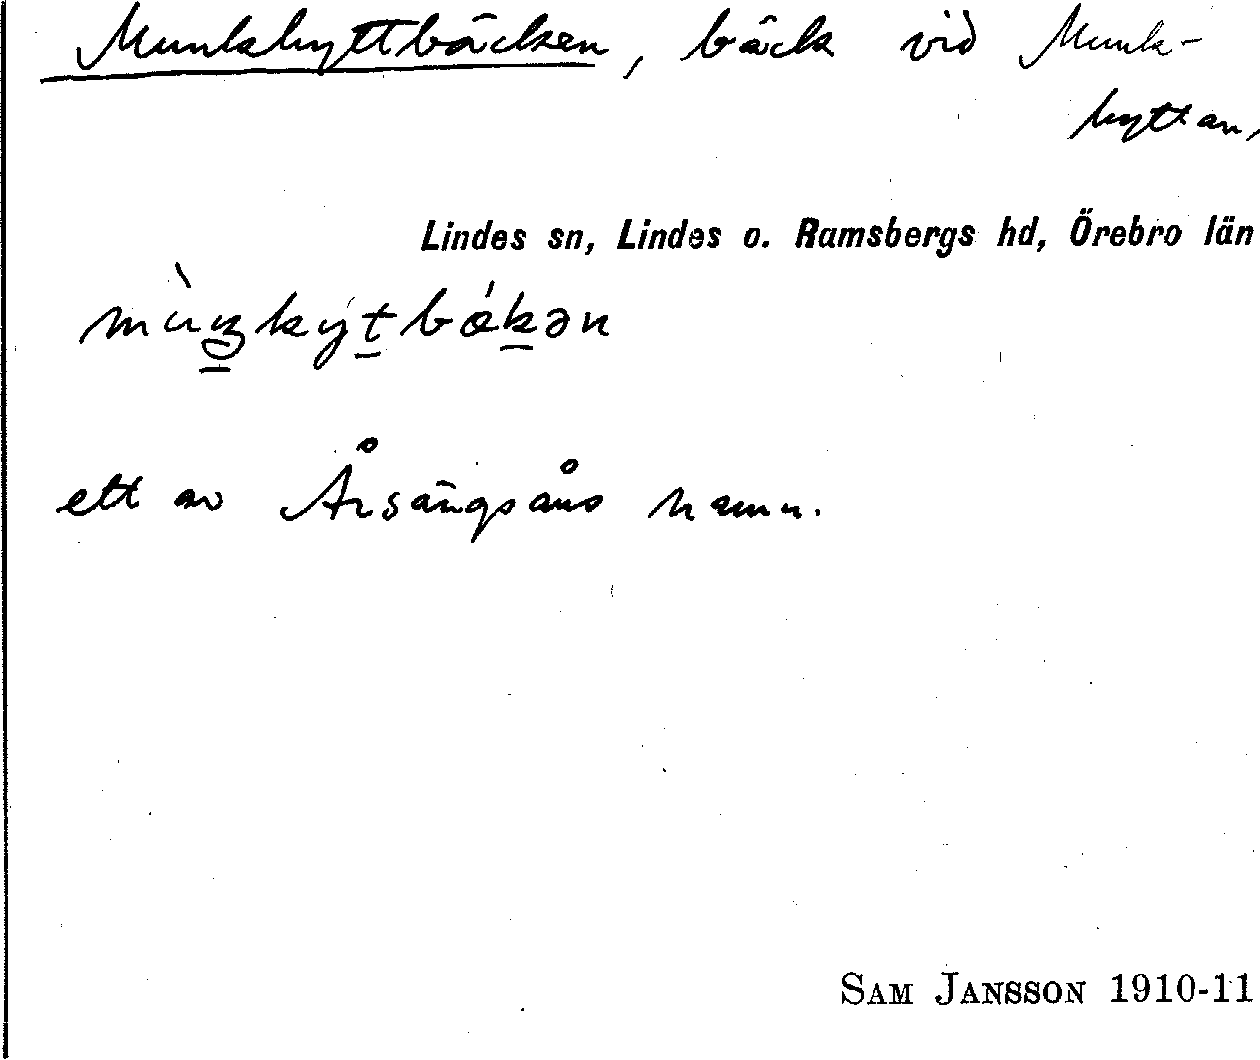 Munkhyttbäcken, bäck vid Munk-
hyttan,
Lindes sn, Lindes o. Ramsbergs hd, Örebro län
mùŋkýtbǽkən
ett av Årsängsåns namn.
SAM JANSSON 1910-11